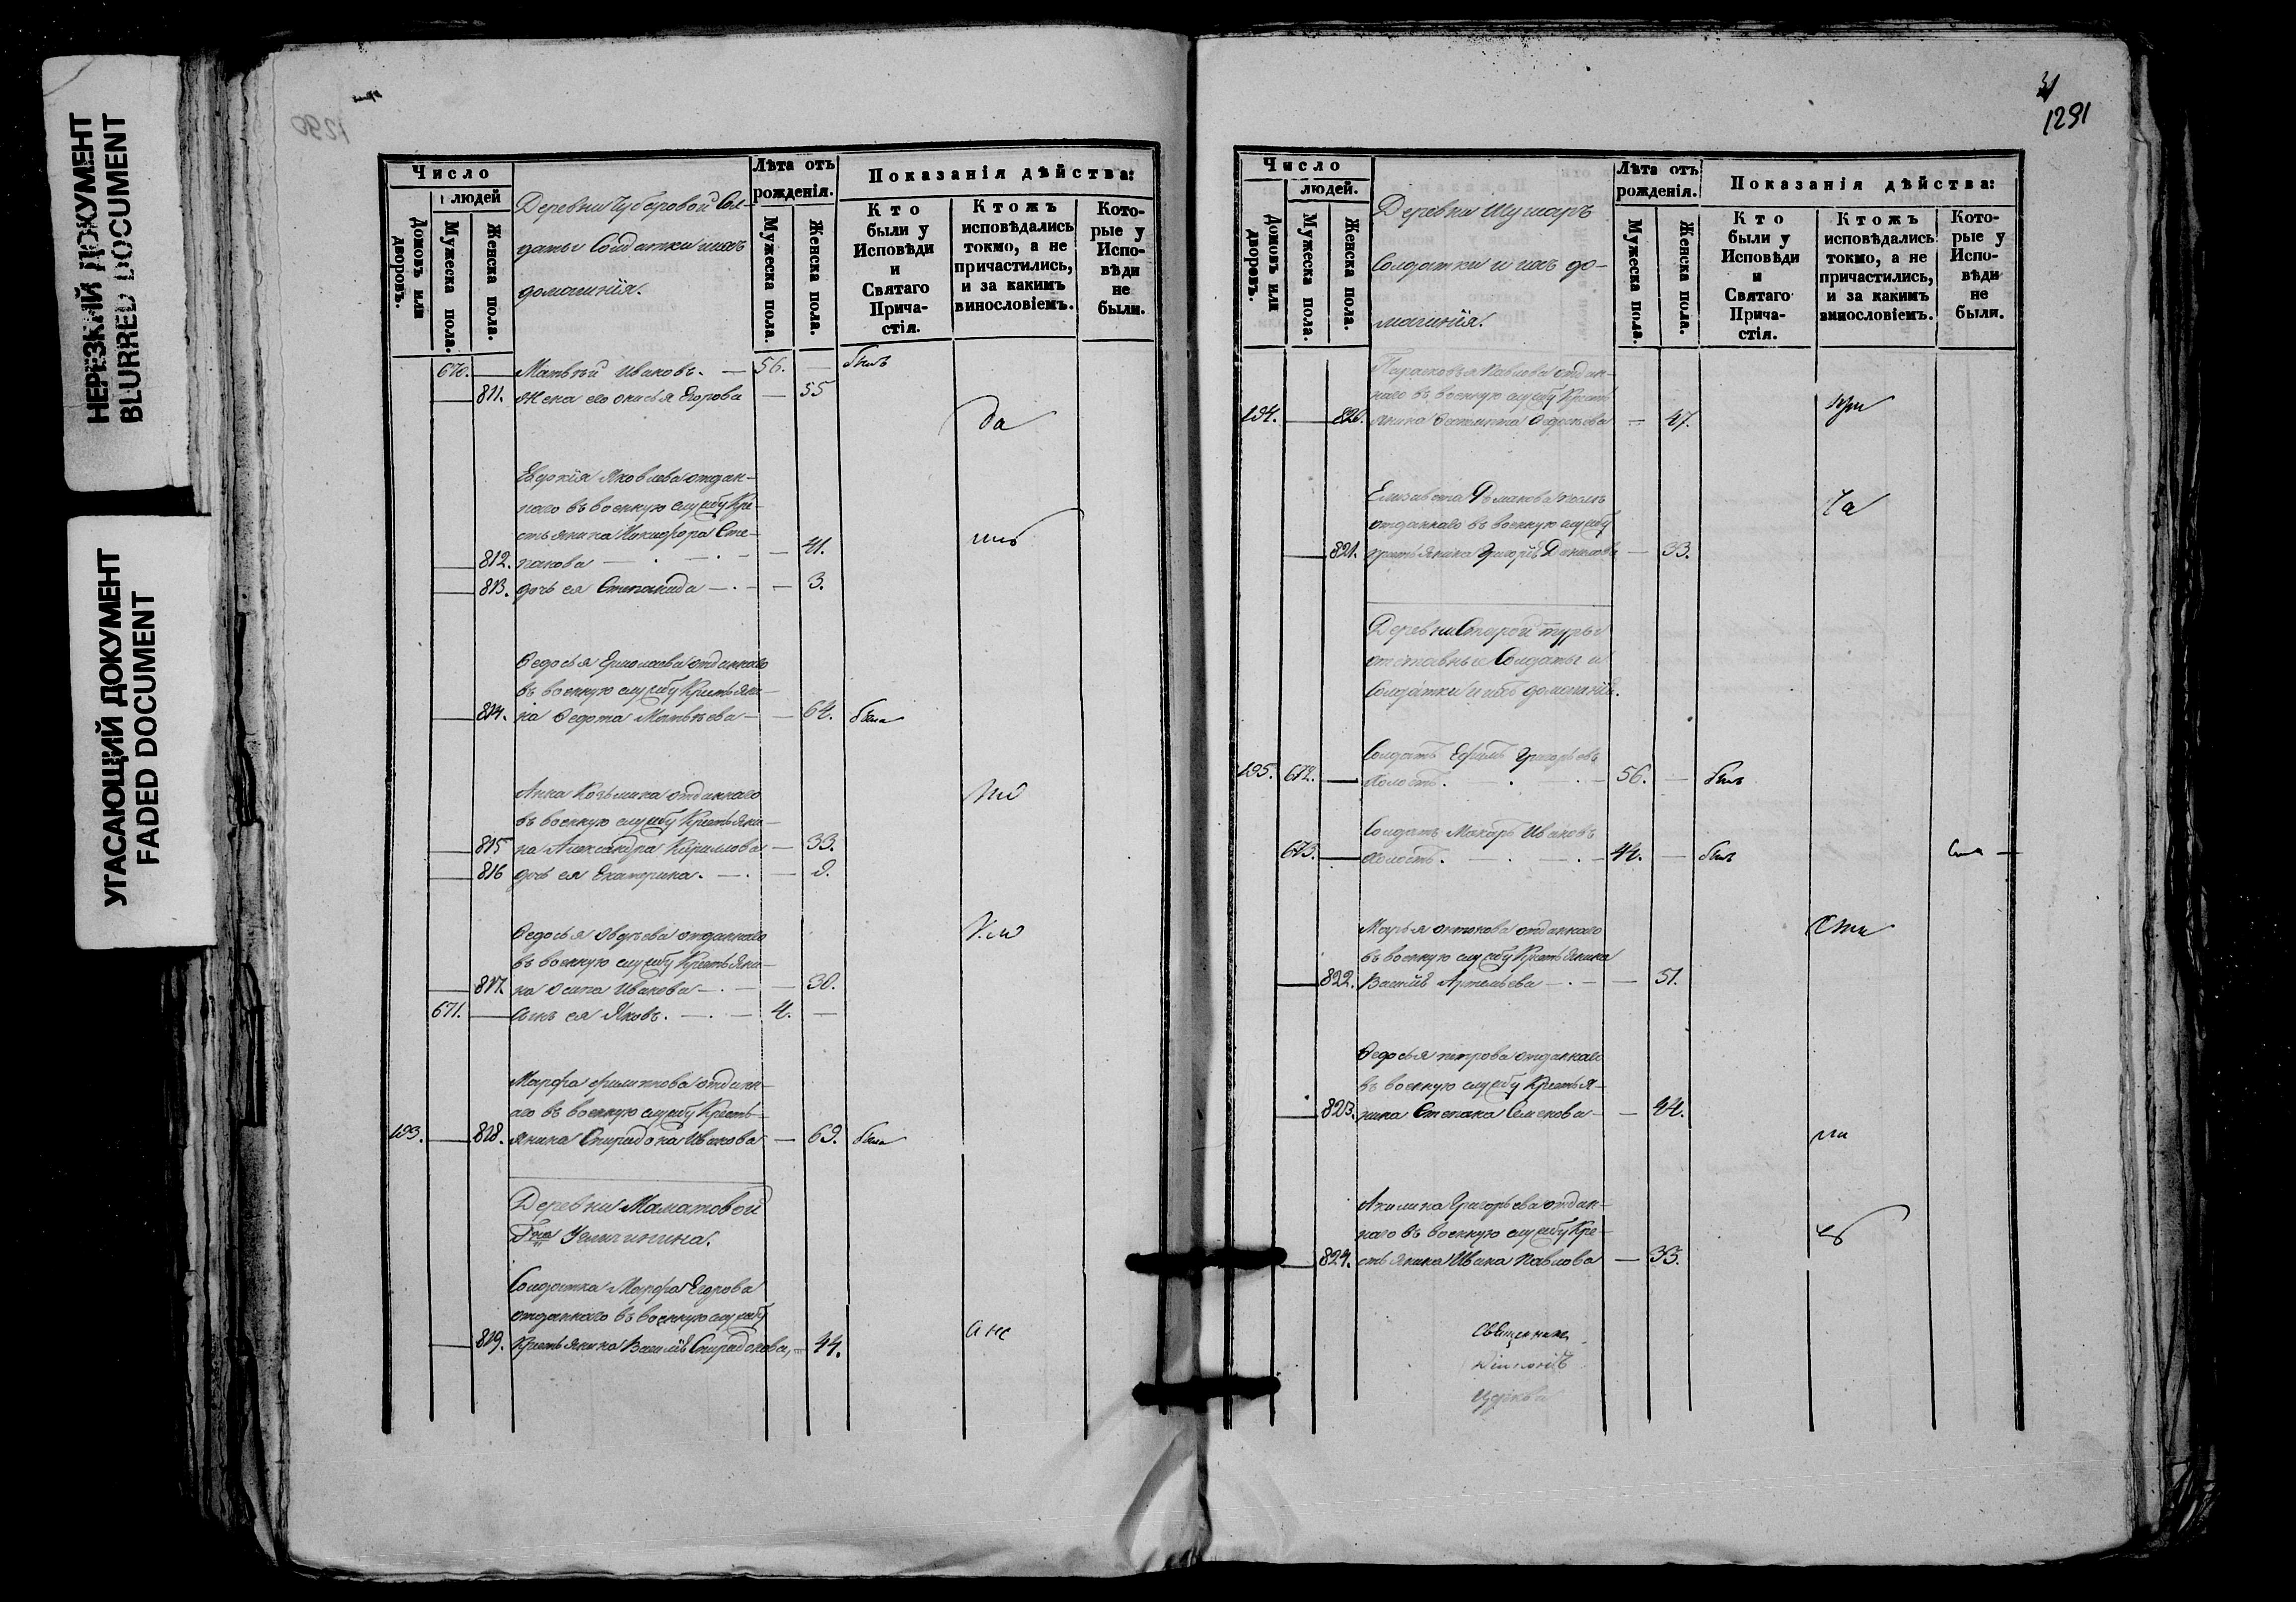 НЕРЕЗКИЙ ДОКУМЕНТ
BLURRED DOCUMENT
УГАСАЮЩИЙ ДОКУМЕНТ
FADED DOCUMENT
1290
Число
людей
Домовъ или дворовъ.
Мужеска пола.
Женска пола.
Деревни Губеровой Сол-
даты Солдатки и ихъ
домашнія.
Лѣта отъ
рожденія.
Мужеска пола.
Женска пола.
Показанія дѣйства:
Кто
были у
Исповѣди
и
Святаго
Прича-
стія.
Ктожъ
исповѣдались
токмо, а не
причастились,
и за какимъ
винословіемъ.
Кото-
рые у
Испо-
вѣди
не
были.
670. Матвѣй Ивановъ. 56. былъ
811. Жена его Егорова 55
да
Евдокія Яковлева отдан-
наго въ военную службу Кре-
стьянина Никифора Сте-
812. панова 41.
813. дочь ея Степанида 3.
Федосья Ермолаева отданнаго
въ военную службу Крестьяни-
814. на Федота Матвѣева 64. была
Анна Козьмина отданнаго
въ военную службу Крестьяни-
815 на Александра Кирилова 33.
816 дочь ея Екатерина. 9.
Федосья отданнаго
въ военную службу Крестьяни-
817. на Осипа Иванова 30.
671. Сынъ ея Яковъ. 4.
Марфа Филипова отданн-
аго въ военную службу Кресть-
193. 818. янина Спиридона Иванова 69. была
Деревни Маматовой
Солдатка Марфа Егорова
отданнаго въ военную службу
819. Крестьянина Василія Спиридонова, 44.
31
1291
Число
людей.
Домовъ или дворовъ.
Мужеска пола.
Женска пола.
Деревни Шушаръ
Солдатки и ихъ до-
машнія.
Лѣта отъ
рожденія.
Мужеска пола.
Женска пола.
Показанія дѣйства:
Кто
были у
Исповѣди
и
Святаго
Прича-
стія.
Ктожъ
исповѣдались
токмо, а не
причастились,
и за какимъ
винословіемъ.
Кото-
рые у
Испо-
вѣди
не
были.
Парасковья Павлова отдан-
наго въ военную службу Крест
194. 820. янина 47.
при
Елизавета
отданнаго въ военную службу
821. крестьянина Григорія Денисова 33.
ча
Деревни Старой Туры
отставные Солдаты и
Солдатки и ихъ домашнія.
Солдатъ Ефимъ Григорьевъ
195. 672. Холостъ. 56. былъ
Солдатъ Макаръ Ивановъ
673. Холостъ. 44. былъ
Марья Антонова отданнаго
въ военную службу Крестьянина
822. Василія Артемьева 51.
сти
Федосья Петрова отданнаго
въ военную службу Крестья-
823. нина Степана Семенова 44.
Акилина Григорьева отдан-
наго въ военную службу Кре-
824. стьянина Ивана Павлова 33.
Священникъ
Церкви